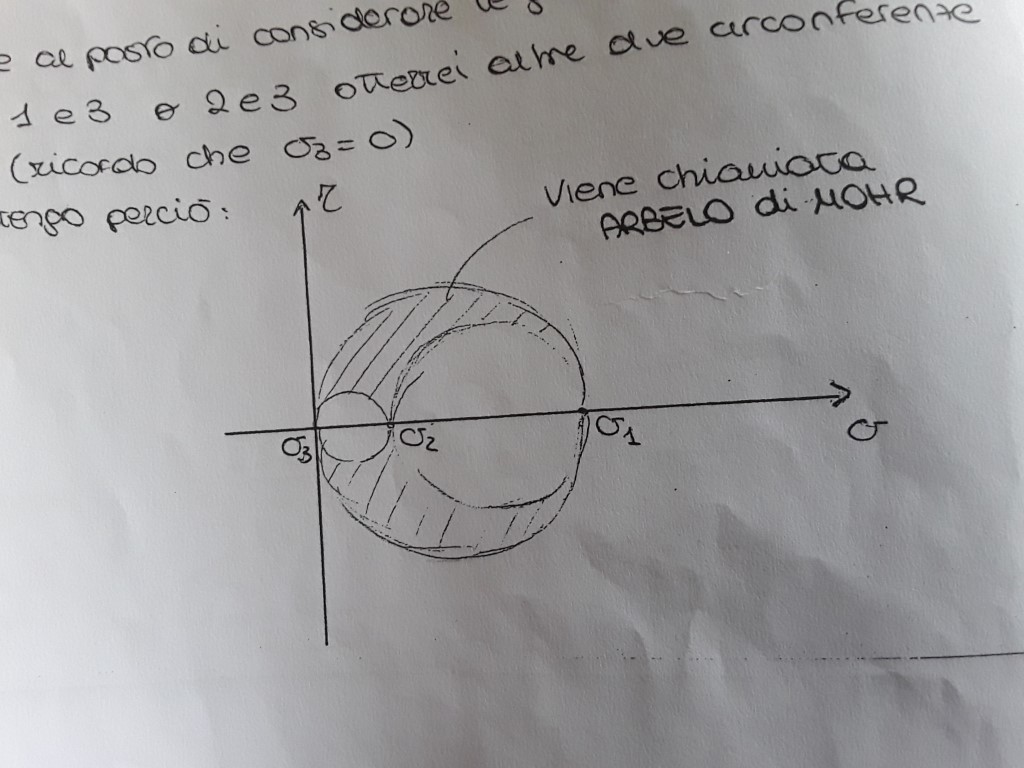 e al posto di considerare le
1 e 3 o 2 e 3 otterrei altre due circonferenze
(ricordo che σ3 = 0)
tengo perciò:
τ
Viene chiamata
ARBELO di MOHR
σ3
σ2
σ1
σ